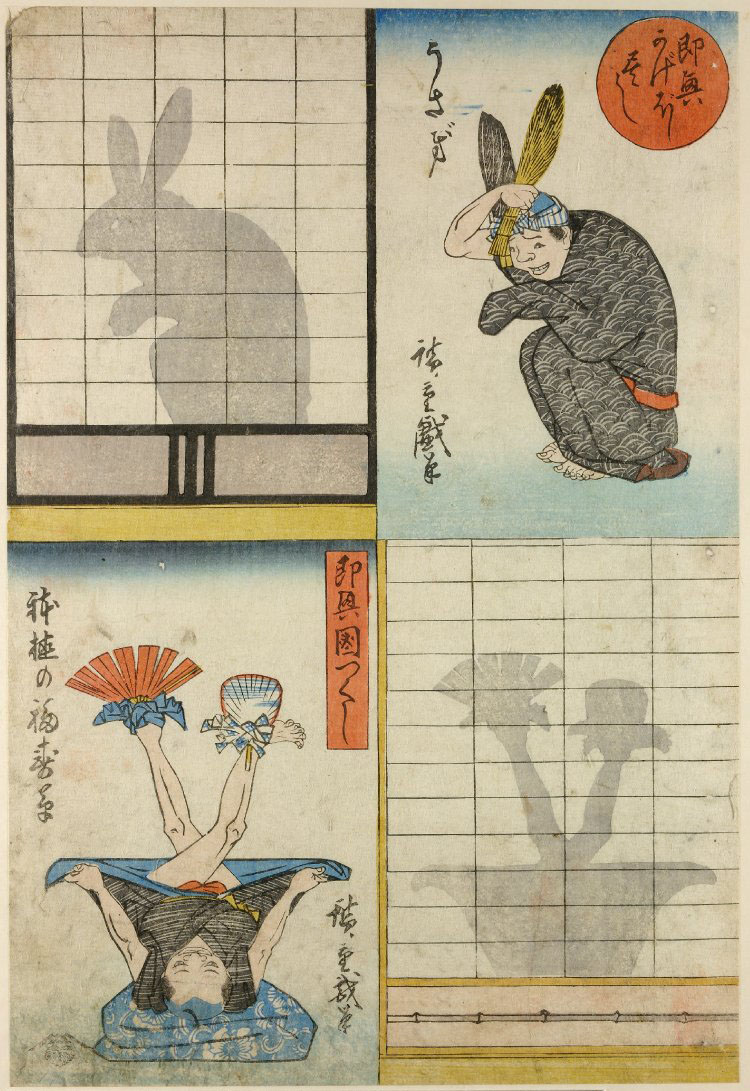 即興
かげぼし
尽し
うさぎ
廣重戯筆
即興圖つくし
鉢植の福寿草
廣重戯筆